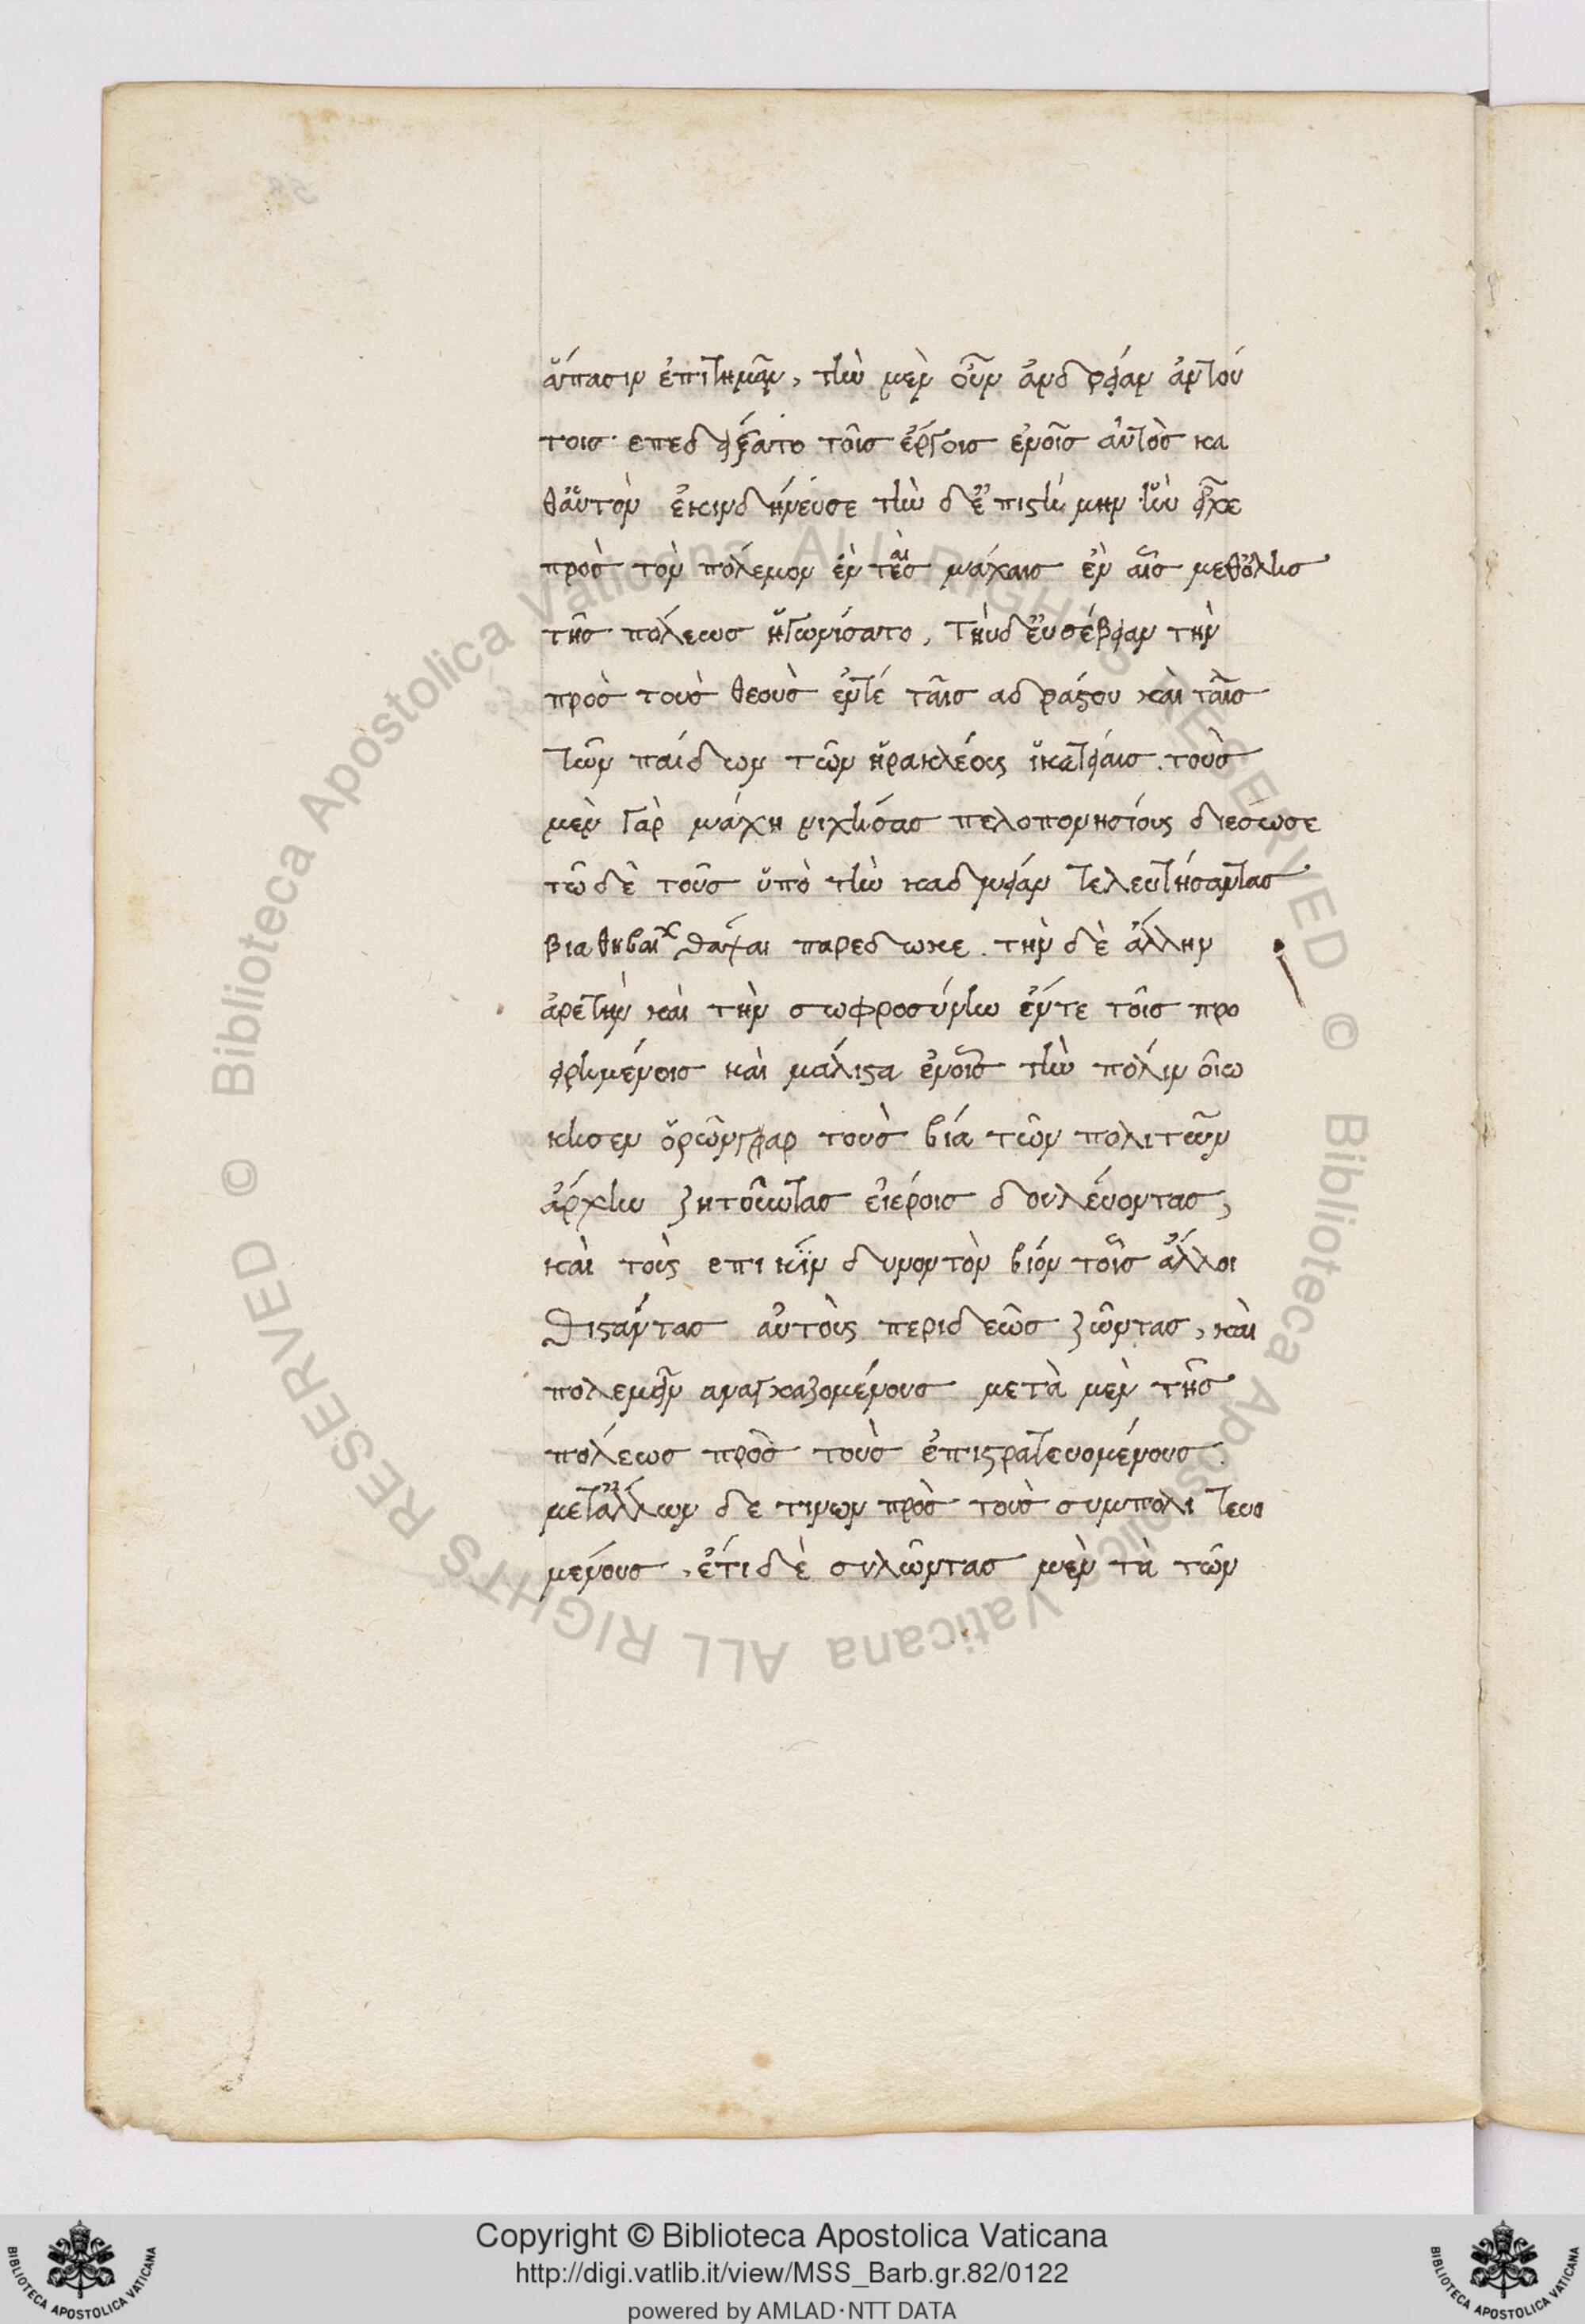 ἅπασιν ἐπιτημᾶν, τὴν μὲν οὖν ἀνδρείαν ἀντού
τοισ επεδείξατο τοῖσ ἔργοισ ἐνοἷσ αὐτὸσ κα
θἁυτὸν ἐκινδήνευσε τὴν δἐπιστήμην ἣν εἶχε
πρὸσ τὸν πόλεμον ἐν ταῖσ μάχαισ ἐν αἷσ μεθὅλησ
τῆσ πόλεωσ ἠγωνίσατο, τὴνδἐυσέβειαν τὴν
πρὸσ τοὺσ θεοὺσ ἐντέ ταῖσ αδράστου καὶ ταῖσ
τῶν παίδων τῶν ἡρακλέους ἱκετείαισ. τοὺσ
μὲν γὰρ μάχη νικήσασ πελοπονησίους διέσωσε
τῶδὲ τοῦσ ὑπὸ τὴν καδμείαν τελευτήσαντασ
βια θηβαι θάψαι παρεδωκε. τὴν δὲ ἄλλην
ἀρετὴν καὶ τὴν σωφροσύνην ἔντε τοῖσ προ
ειρημένοισ καὶ μάλιστα ἐνοἷσ τὴν πόλιν διω
κησεν ὁρῶνγὰρ τοὺσ βία τῶν πολιτῶν
ἄρχην ζητοῦντασ ἑτέροισ δουλέυοντασ,
καὶ τοὺς επικίν δυνοντὸν βίον τοῖσ ἄλλοι
θιστάντασ αὐτοὺς περιδεῶσ ζῶντασ, καὶ
πολεμεῖν αναγκαζομένουσ μετὰ μὲν τῆσ
πόλεωσ πρὸσ τοὺσ ἐπιστρατευομένουσ.
μετἄλλων δε τινων πρὸσ τοὺσ συμπολι τευο
μένουσ, ἔτι δὲ συλῶντασ μὲν τὰ τῶν
Copyright © Biblioteca Apostolica Vaticana
http://digi.vatlib.it/view/MSS_Barb.gr.82/0122
powered by AMLAD·NTT DATA